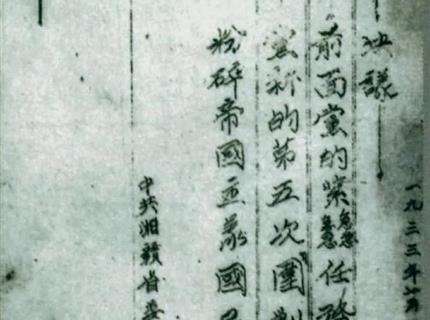 一九三三年
决议
前面党的紧急任務
黨新的第五次圍剿
粉碎帝國主義國民
中共湘赣省委